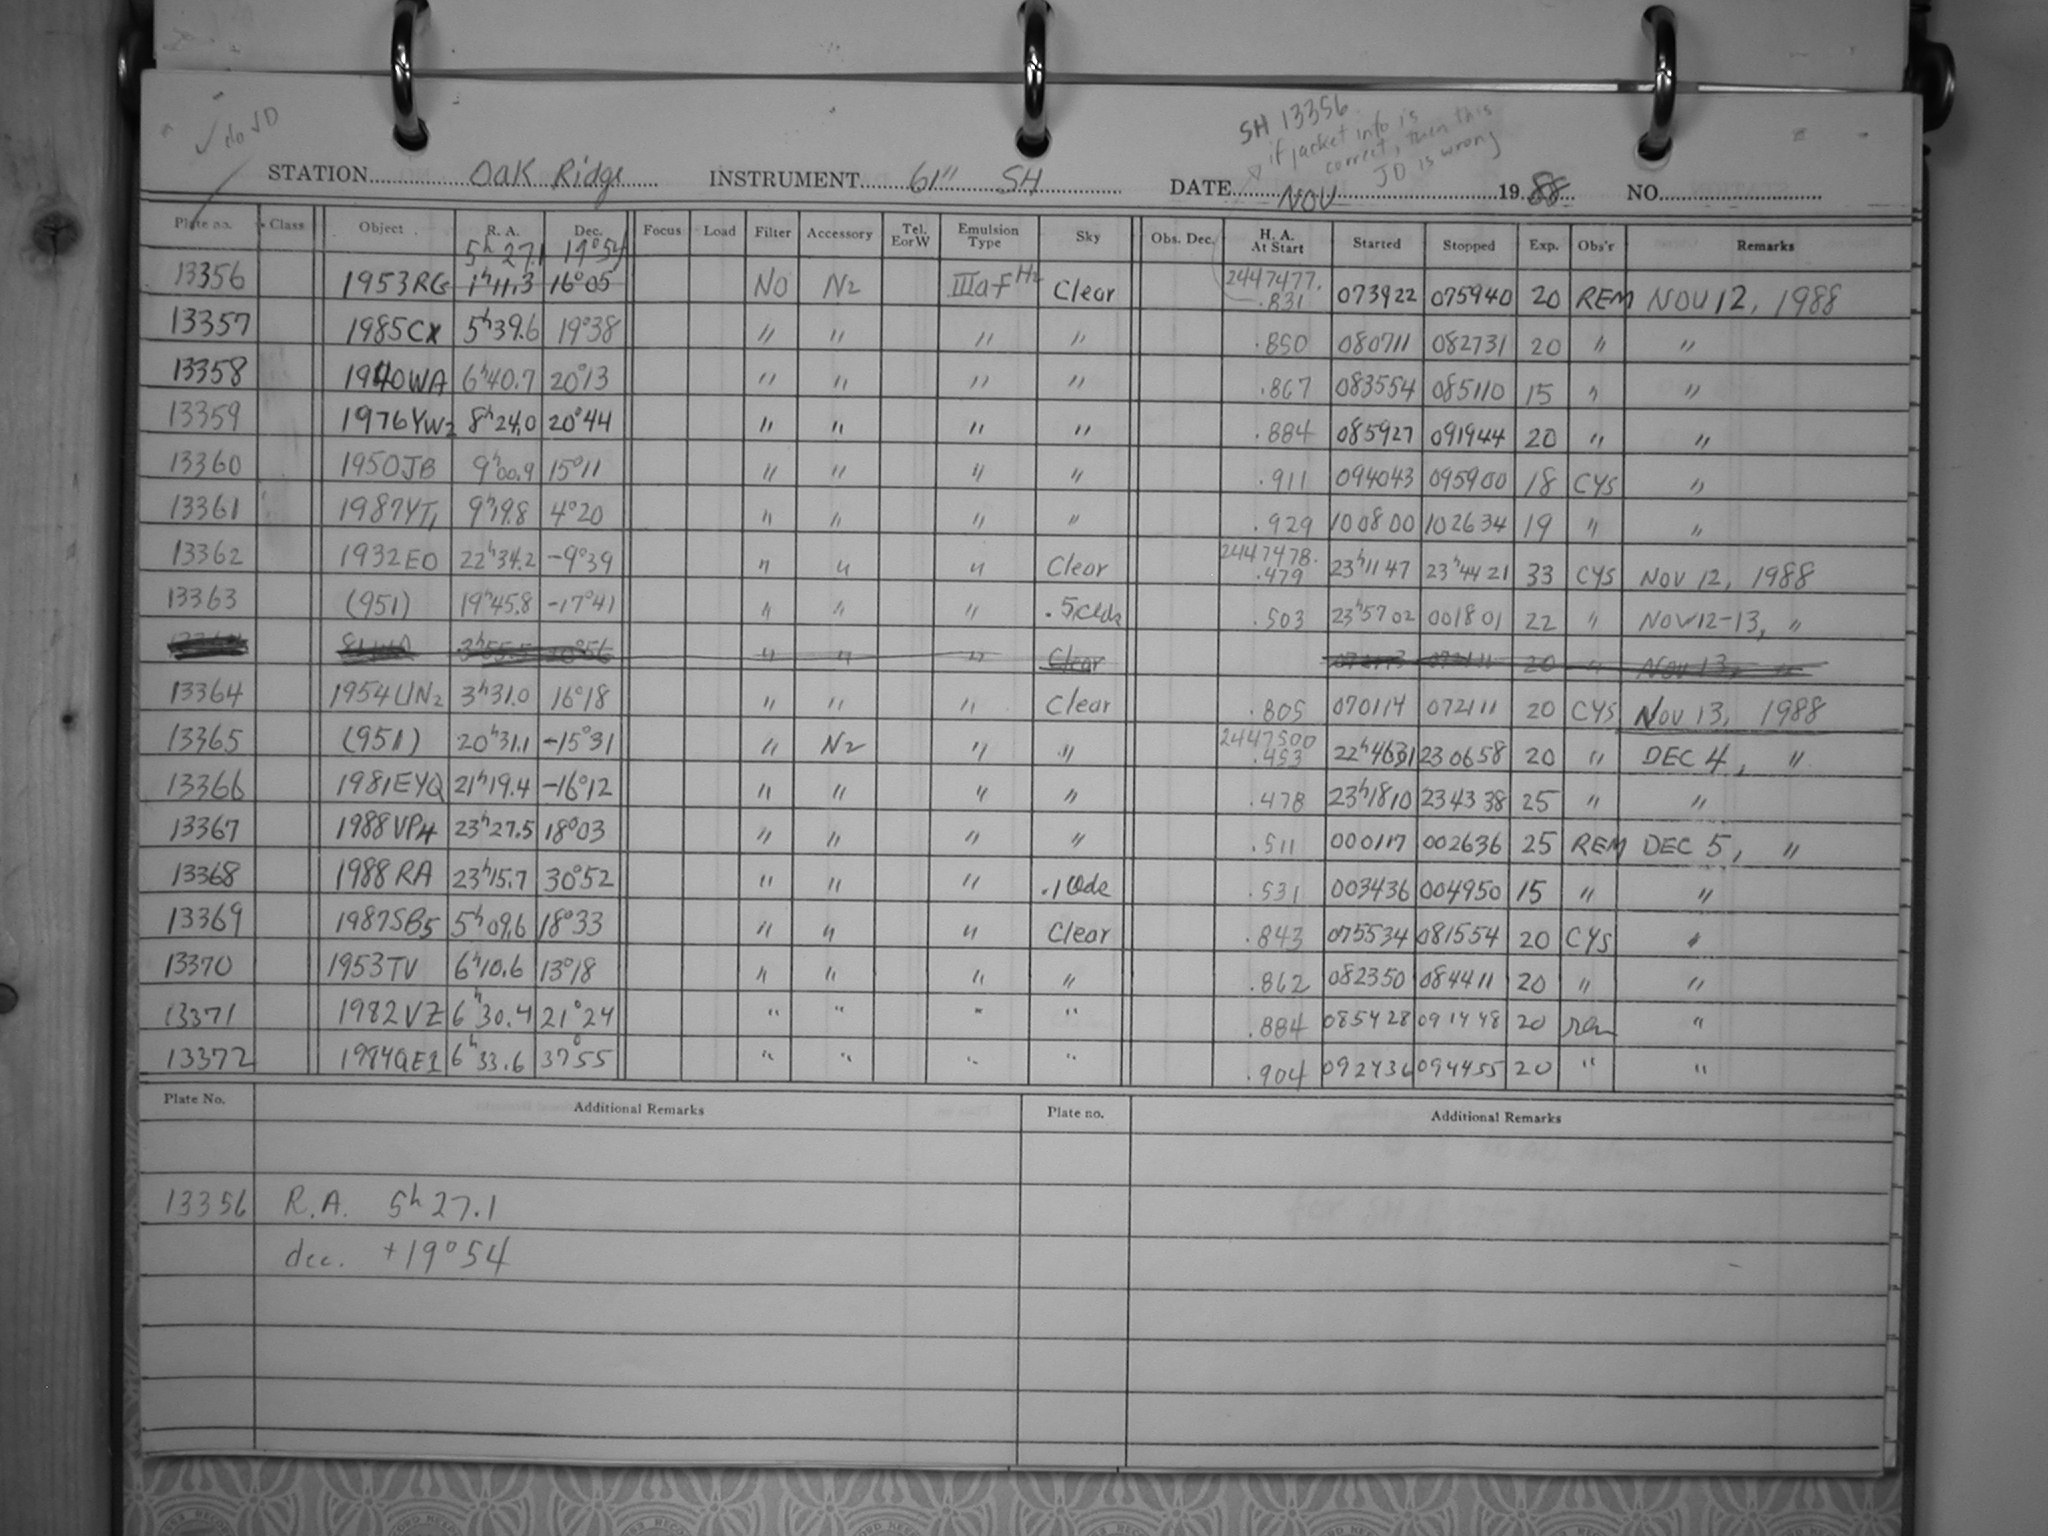 ✓ do JD
SH 13356
if jacket info is
correct, then this
JD is wrong
STATION Oak Ridge INSTRUMENT 61" SH DATE NOV 1988 NO.
Plate no. Class Object R. A. Dec. Focus Load Filter Accessory Tel. E or W Emulsion Type Sky Obs. Dec. H. A. At Start Started Stopped Exp. Obs'r Remarks
5h 27.1 19°54
13356 1953RG 1h11.3 16°05 NO N2 IIIaF H2 Clear 2447477. .831 073922 075940 20 REM NOV 12, 1988
13357 1985CX 5h39.6 19°38 " " " " .850 080711 082731 20 " "
13358 1940WA 6h40.7 20°13 " " " " .867 083554 085110 15 " "
13359 1976YW2 8h24.0 20°44 " " " " .884 085927 091944 20 " "
13360 1950JB 9h00.9 15°11 " " " " .911 094043 095900 18 CYS "
13361 1987YT1 9h19.8 4°20 " " " " .929 100800 102634 19 " "
13362 1932EO 22h34.2 -9°39 " " " Clear 2447478. .479 23h1147 23h4421 33 CYS Nov 12, 1988
13363 (951) 19h45.8 -17°41 " " " .5 clds .503 23h5702 001801 22 " NOV 12-13, "
3h55.5 20°56 " " " Clear 20 " NOV 13, "
13364 1954UN2 3h31.0 16°18 " " " Clear .805 070114 072111 20 CYS Nov 13, 1988
13365 (951) 20h31.1 -15°31 " N2 " " 2447500 .453 22h4631 230658 20 " DEC 4, "
13366 1981EYQ 21h19.4 -16°12 " " " " .478 23h1810 234338 25 " "
13367 1988VP4 23h27.5 18°03 " " " " .511 000117 002636 25 REM DEC 5, "
13368 1988RA 23h15.7 30°52 " " " .531 003436 004950 15 " "
13369 1987SB5 5h09.6 18°33 " " " Clear .843 075534 081554 20 CYS "
13370 1953TV 6h10.6 13°18 " " " " .862 082350 084411 20 " "
13371 1982VZ 6h30.4 21°24 " " " " .884 085428 091448 20 rem "
13372 6h33.6 37°55 " " " " .904 092436 094455 20 " "
Plate No. Additional Remarks Plate no. Additional Remarks
13356 R.A. 5h 27.1
dec. +19°54